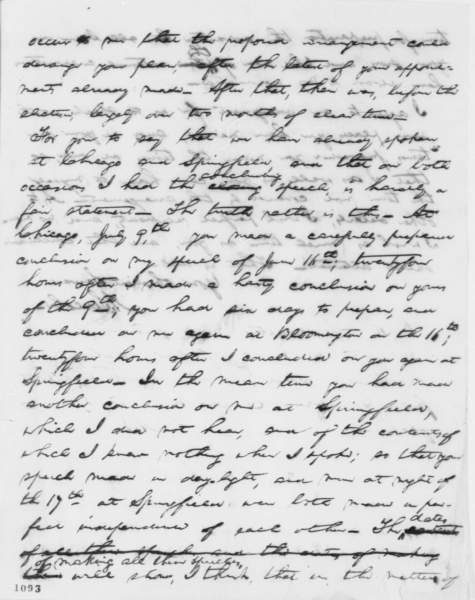 occur to me that the proposed arrangement could
derange your plan, after the latest of your appoint-
ments already made. After that, there was, before the
election, largely over two months of clear time.
For you to say that we have already spoken
at Chicago and Springfield, and that on both
occasions I had the concluding speech, is hardly a
fair statement. The truth rather is this. At
Chicago, July 9th, you made a carefully prepared
conclusion on my speech of June 16th; twentyfour
hours after I made a hasty conclusion on yours
of the 9th; you had six days to prepare, and
concluded on me again at Bloomington on the 16th;
twentyfour hours after I concluded on you again at
Springfield. In the mean time you had made
another conclusion on me at Springfield,
which I did not hear, and of the contents of
which I knew nothing when I spoke; so that your
speech made in daylight, and mine at night of
the 17th at Springfield were both made in per-
fect independence of each other. The dates
of making all these speeches,
will show, I think, that in the matter of
1093